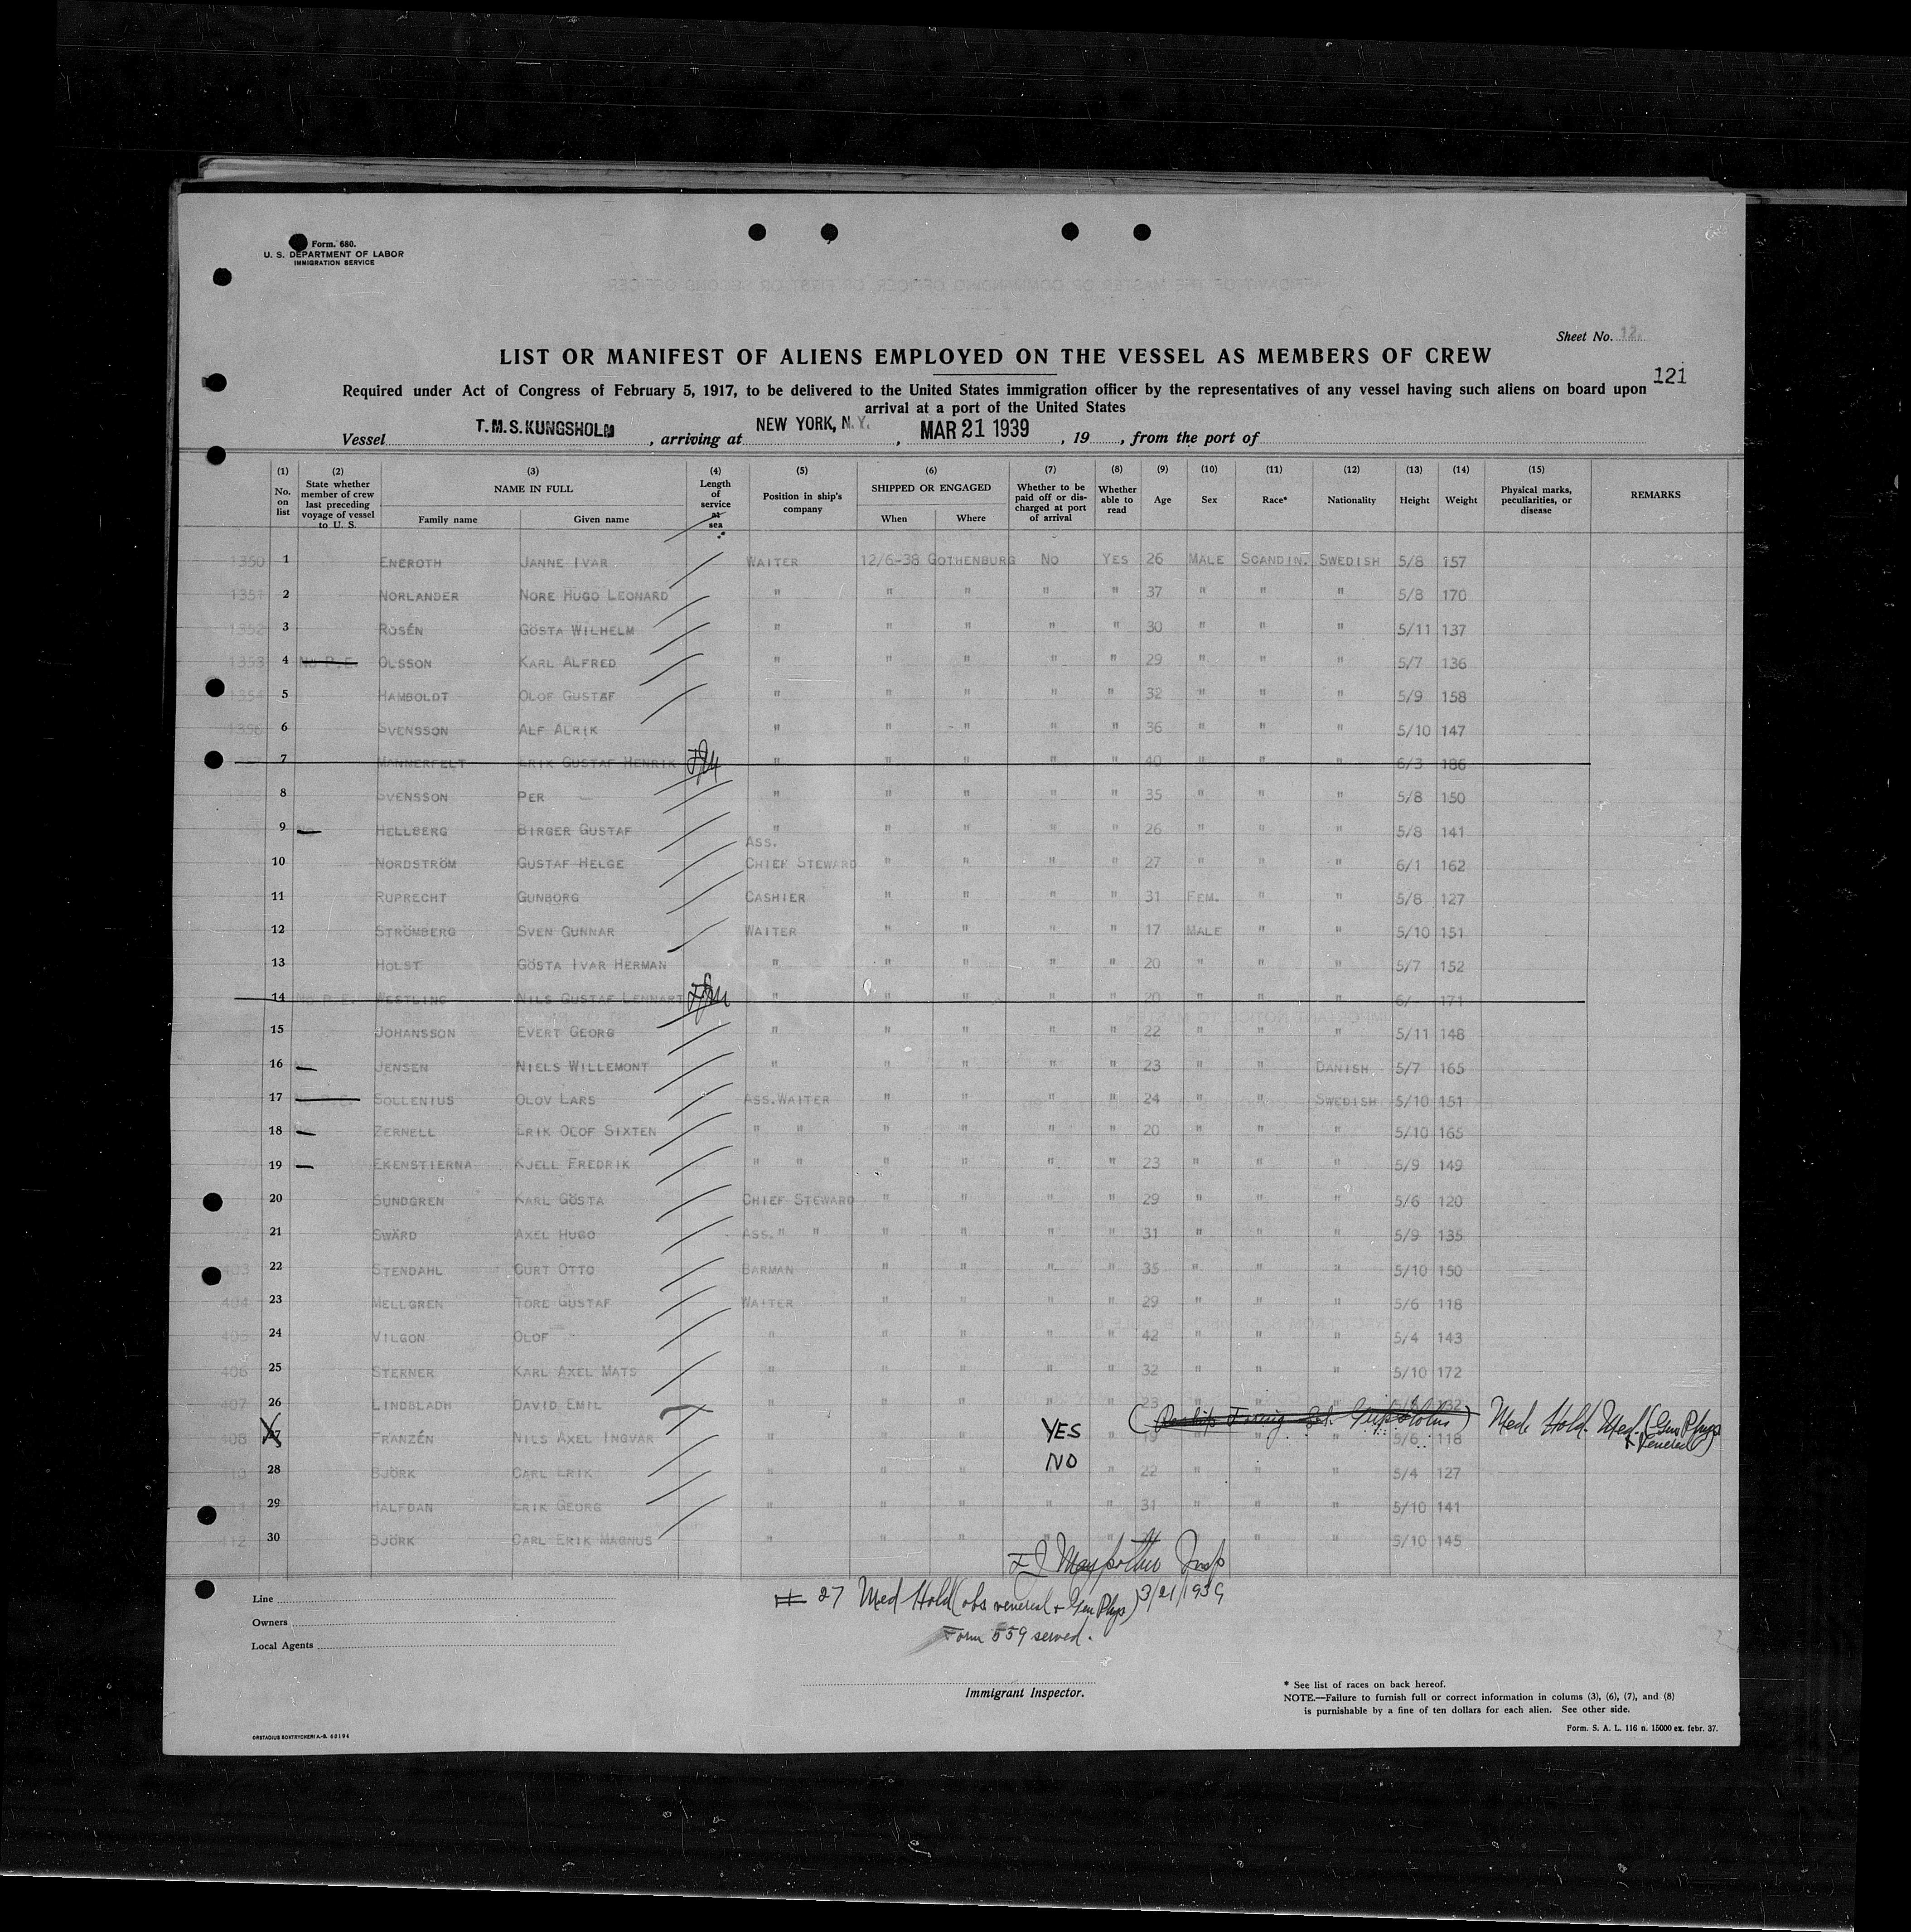 Form. 680.
U. S. DEPARTMENT OF LABOR
IMMIGRATION SERVICE
Sheet No. 12.
LIST OR MANIFEST OF ALIENS EMPLOYED ON THE VESSEL AS MEMBERS OF CREW
121
Required under Act of Congress of February 5, 1917, to be delivered to the United States immigration officer by the representatives of any vessel having such aliens on board upon
arrival at a port of the United States
Vessel T.M.S. KUNGSHOLM, arriving at NEW YORK, N.Y., MAR 21 1939, 19, from the port of
(1) No. on list (2) State whether member of crew last preceding voyage of vessel to U. S. (3) NAME IN FULL Family name Given name (4) Length of service at sea (5) Position in ship's company (6) SHIPPED OR ENGAGED When Where (7) Whether to be paid off or discharged at port of arrival (8) Whether able to read (9) Age (10) Sex (11) Race* (12) Nationality (13) Height (14) Weight (15) Physical marks, peculiarities, or disease REMARKS
1350 1 ENEROTH JANNE IVAR WAITER 12/6-38 GOTHENBURG NO YES 26 MALE SCANDIN. SWEDISH 5/8 157
1351 2 NORLANDER NORE HUGO LEONARD " " " " " 37 " " " 5/8 170
1352 3 ROSÉN GÖSTA WILHELM " " " " " 30 " " " 5/11 137
1353 4 No P.E. OLSSON KARL ALFRED " " " " " 29 " " " 5/7 136
1354 5 HAMBOLDT OLOF GUSTAF " " " " " 32 " " " 5/9 158
1356 6 SVENSSON ALF ALRIK " " " " " 36 " " " 5/10 147
7 MANNERFELT ERIK GUSTAF HENRIK " " " " " 40 " " " 6/3 186
8 SVENSSON PER " " " " " 35 " " " 5/8 150
9 HELLBERG BIRGER GUSTAF " " " " " 26 " " " 5/8 141
10 NORDSTRÖM GUSTAF HELGE ASS. CHIEF STEWARD " " " " 27 " " " 6/1 162
11 RUPRECHT GUNBORG CASHIER " " " " 31 FEM. " " 5/8 127
12 STRÖMBERG SVEN GUNNAR WAITER " " " " 17 MALE " " 5/10 151
13 HOLST GÖSTA IVAR HERMAN " " " " " 20 " " " 5/7 152
14 No P.E. WESTLING NILS GUSTAF LENNART " " " " " 20 " " " 6/ 171
15 JOHANSSON EVERT GEORG " " " " " 22 " " " 5/11 148
16 JENSEN NIELS WILLEMONT " " " " " 23 " " DANISH 5/7 165
17 SOLLENIUS OLOV LARS ASS. WAITER " " " " 24 " " SWEDISH 5/10 151
18 ZERNELL ERIK OLOF SIXTEN " " " " " " 20 " " " 5/10 165
19 EKENSTIERNA KJELL FREDRIK " " " " " " 23 " " " 5/9 149
20 SUNDGREN KARL GÖSTA CHIEF STEWARD " " " " 29 " " " 5/6 120
21 SWÄRD AXEL HUGO ASS. " " " " " " 31 " " " 5/9 135
22 STENDAHL CURT OTTO BARMAN " " " " 35 " " " 5/10 150
404 23 MELLGREN TORE GUSTAF WAITER " " " " 29 " " " 5/6 118
405 24 VILGON OLOF " " " " " 42 " " " 5/4 143
406 25 STERNER KARL AXEL MATS " " " " " 32 " " " 5/10 172
407 26 LINDBLADH DAVID EMIL " " " " " 23
408 27 FRANZÉN NILS AXEL INGVAR " " " YES " 19 " " " 5/6 118 Med. Hold. Med. (Gen Phys & Venereal)
28 BJÖRK CARL ERIK " " " NO " 22 " " " 5/4 127
29 HALFDAN ERIK GEORG " " " " " 31 " " " 5/10 141
30 BJÖRK CARL ERIK MAGNUS " " " " " " " 5/10 145
Insp
# 27 Med Hold (obs venereal + Gen Phys) 3/21/1939
Form 559 served.
Line
Owners
Local Agents
Immigrant Inspector.
* See list of races on back hereof.
NOTE.—Failure to furnish full or correct information in colums (3), (6), (7), and (8)
is purnishable by a fine of ten dollars for each alien. See other side.
Form. S. A. L. 116 n. 15000 ex. febr. 37.